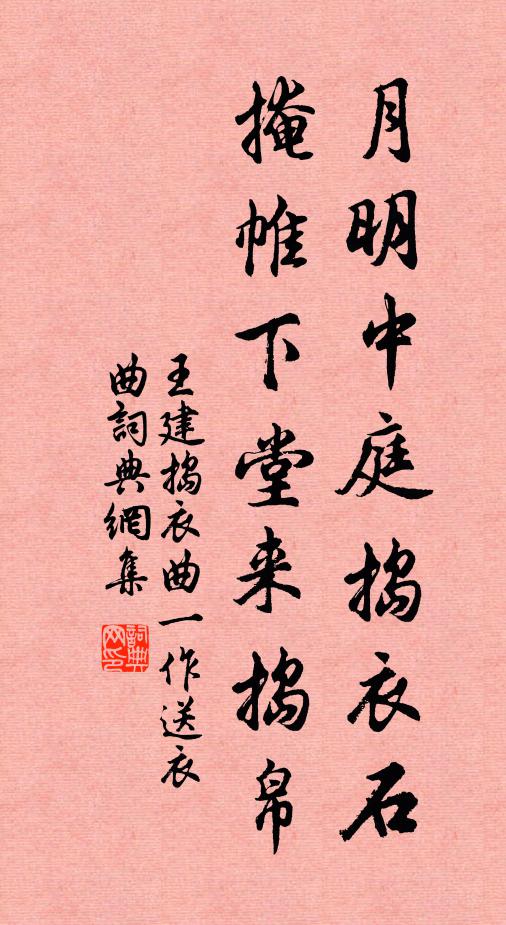 月明中庭搗衣石
掩帷下堂来搗帛
王建搗衣曲一作送衣
曲詞典網集
詞典网印